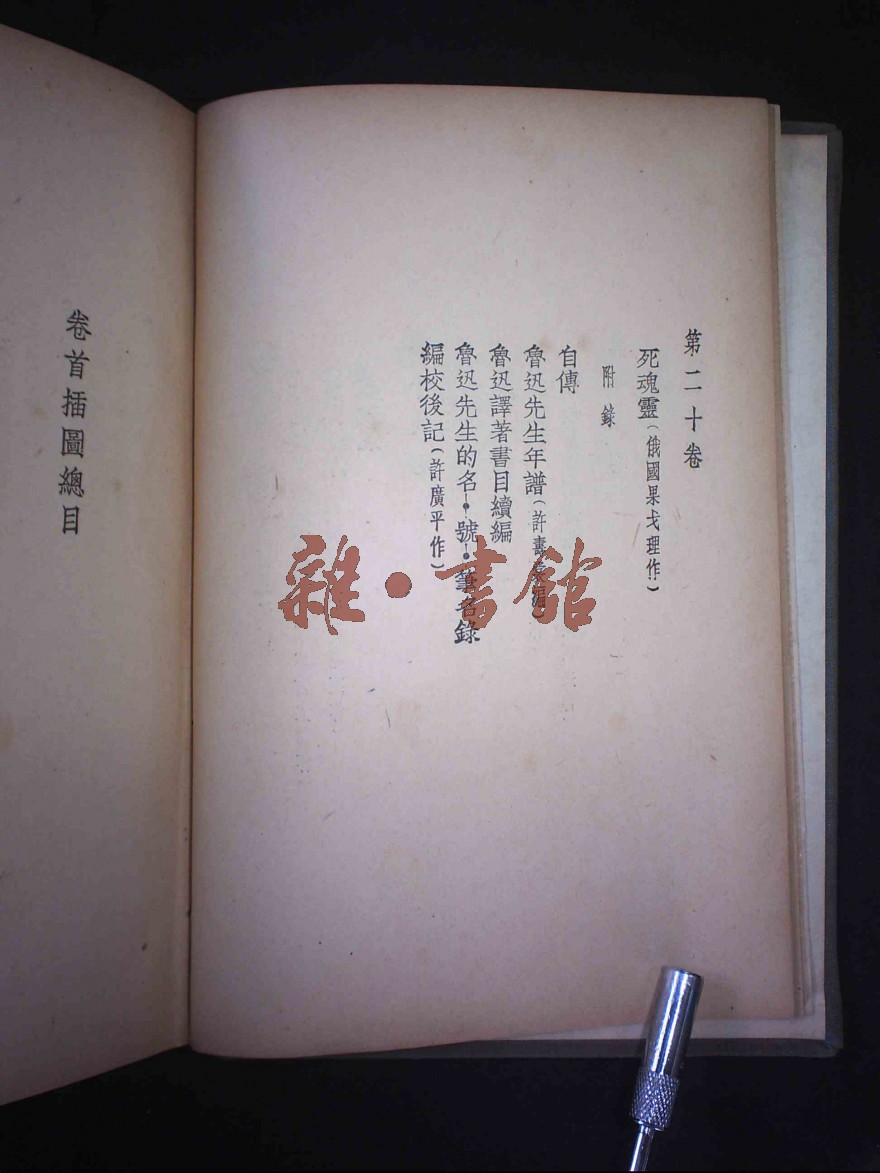 第二十卷
死魂靈(俄國果戈理作)
附錄
自傳
魯迅先生年譜(許壽裳編)
魯迅譯著書目續編
魯迅先生的名·號·筆名錄
編校後記(許廣平作)
卷首插圖總目
雜·書館